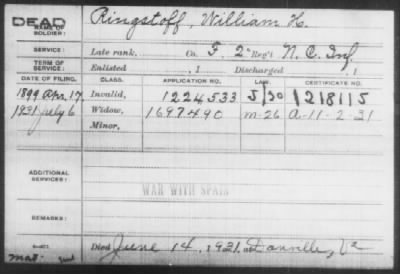 DEAD
NAME OF SOLDIER:
Ringstoff, William H.
SERVICE:
Late rank, Co. F. 2" Reg't N. C. Inf.
TERM OF SERVICE:
Enlisted , 1 Discharged , 1
DATE OF FILING. CLASS. APPLICATION NO. CERTIFICATE NO.
1899 Apr. 17 Invalid, 1224533 5/30 1218115
1931 July 6 Widow, 1697490 m-26 A-11-2-31
Minor,
ADDITIONAL SERVICES:
WAR WITH SPAIN
REMARKS:
Died June 14, 1931, at Danville, Va